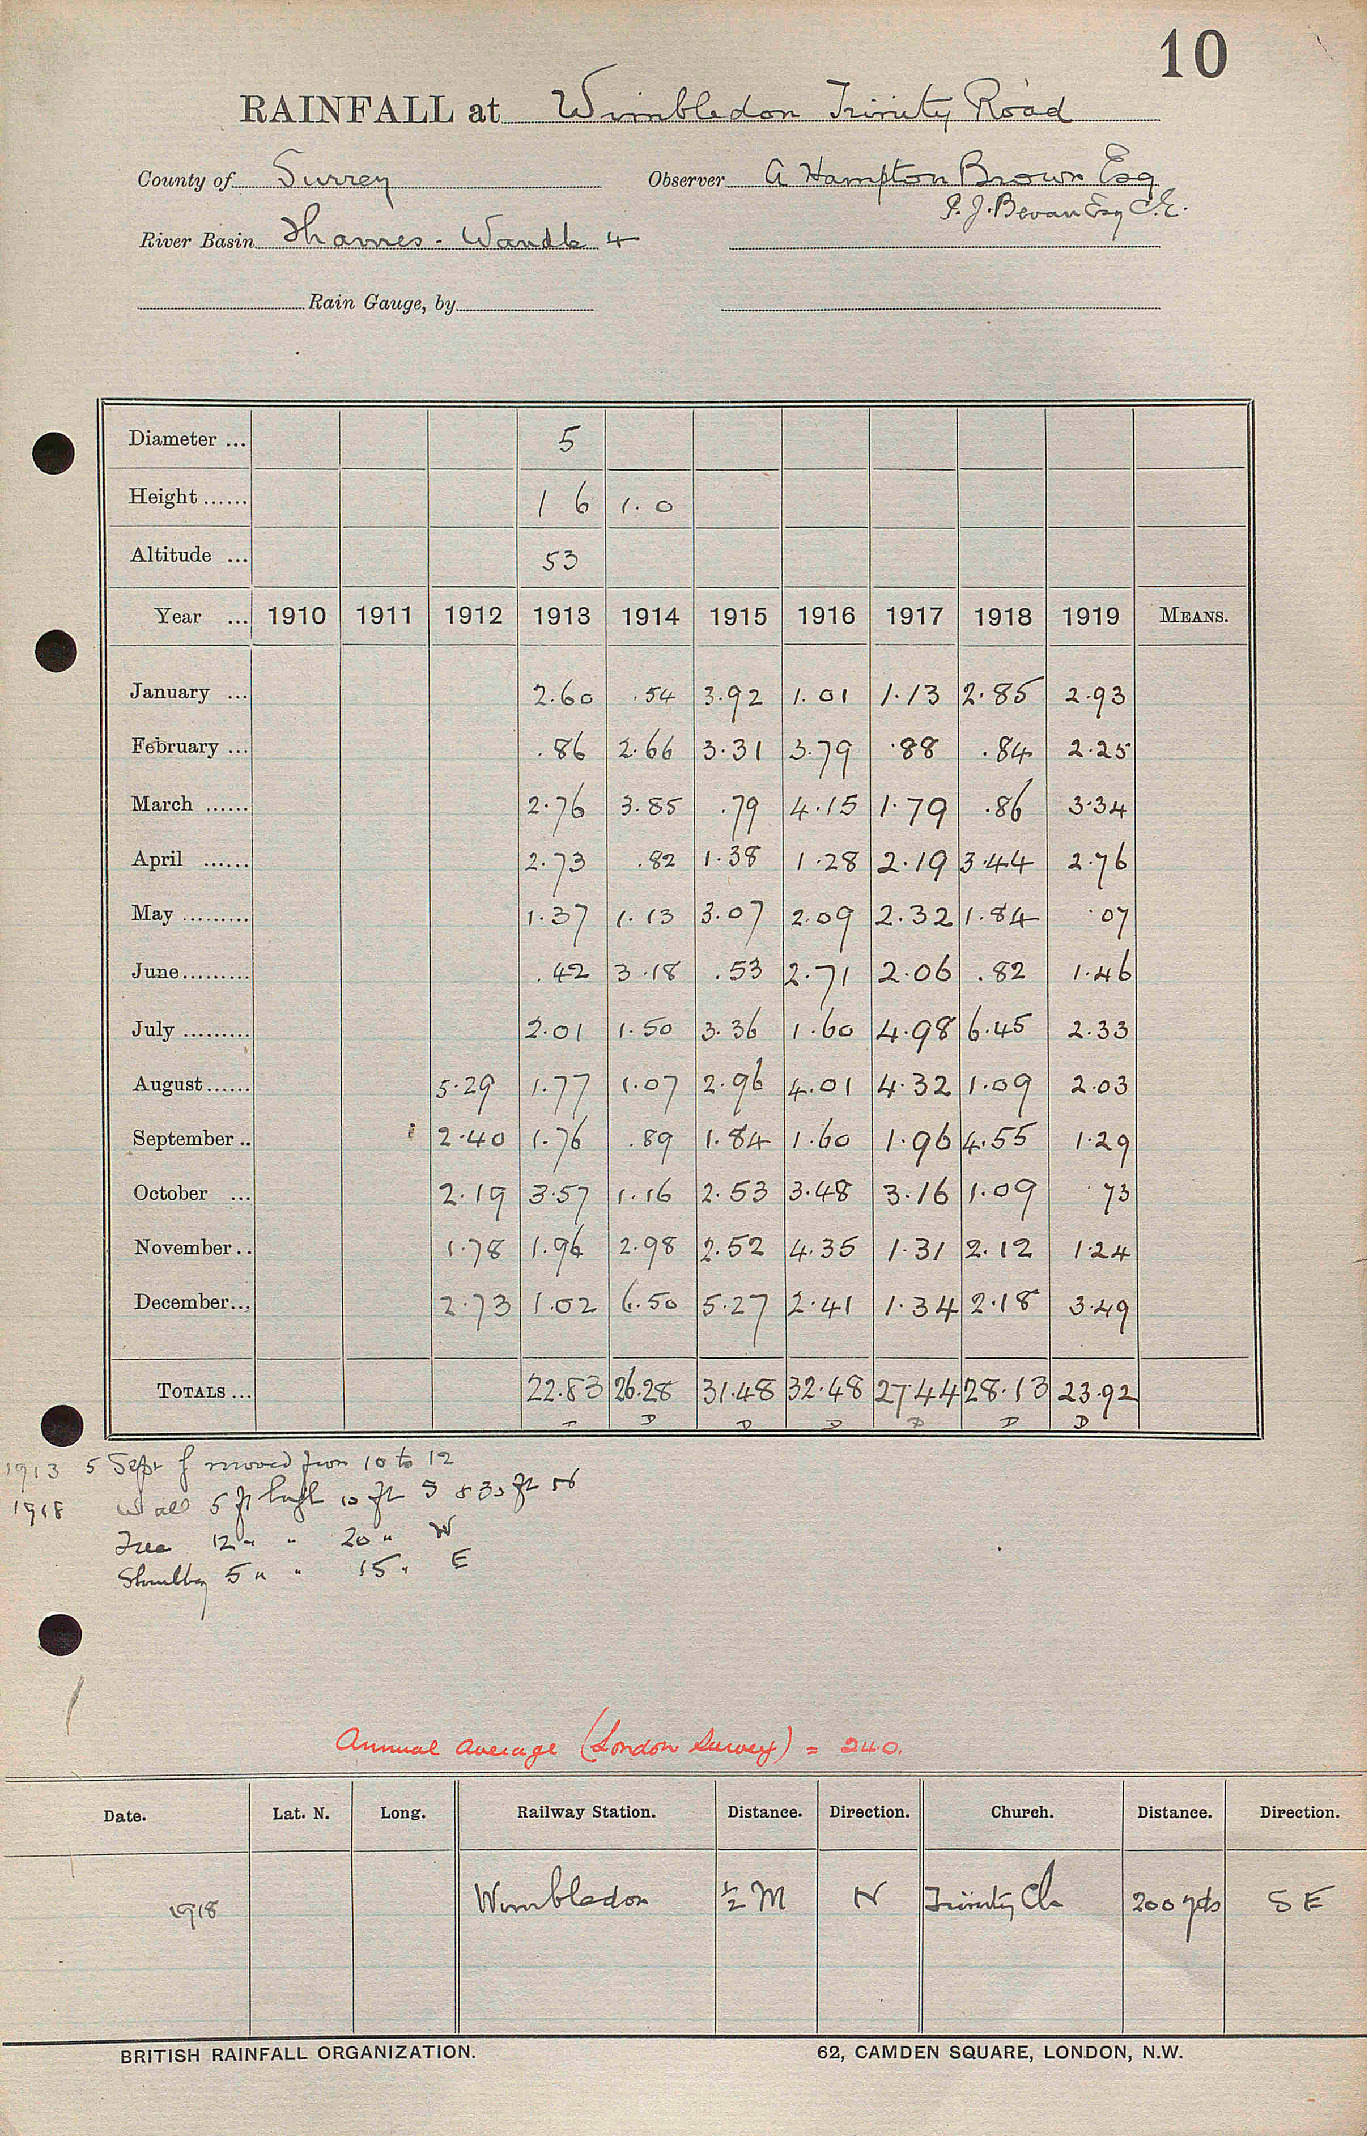 10
RAINFALL at Wimbledon Trinity Road
County of Surrey Observer A Hampton Brown Esq
P. J. Bevan Esq C.E.
River Basin Thames - Wandle 4
Rain Gauge, by
Diameter ... 5
Height ...... 1 6 1.0
Altitude ... 53
Year ... 1910 1911 1912 1913 1914 1915 1916 1917 1918 1919 MEANS.
January ... 2.60 .54 3.92 1.01 1.13 2.85 2.93
February ... .86 2.66 3.31 3.79 .88 .84 2.25
March ...... 2.76 3.85 .79 4.15 1.79 .86 3.34
April ...... 2.73 .82 1.38 1.28 2.19 3.44 2.76
May ......... 1.37 1.13 3.07 2.09 2.32 1.84 .07
June ......... .42 3.18 .53 2.71 2.06 .82 1.46
July ......... 2.01 1.50 3.36 1.60 4.98 6.45 2.33
August ...... 5.29 1.77 1.07 2.96 4.01 4.32 1.09 2.03
September .. 2.40 1.76 .89 1.84 1.60 1.96 4.55 1.29
October ... 2.19 3.57 1.16 2.53 3.48 3.16 1.09 .73
November .. 1.78 1.96 2.98 2.52 4.35 1.31 2.12 1.24
December ... 2.73 1.02 6.50 5.27 2.41 1.34 2.18 3.49
TOTALS ... 22.83 26.28 31.48 32.48 27.44 28.13 23.92
D D D D D D
1913 5 Sept moved from 10 to 12
1918 Wall 5 ft high 10 ft S & 30 ft
Tree 12 " " 20 " W
Shrubby 5 " " 15 " E
Annual average (London Survey) = 24.0.
Date. Lat. N. Long. Railway Station. Distance. Direction. Church. Distance. Direction.
1918 Wimbledon ½ M N Trinity Ch 200 yds S E
BRITISH RAINFALL ORGANIZATION. 62, CAMDEN SQUARE, LONDON, N.W.